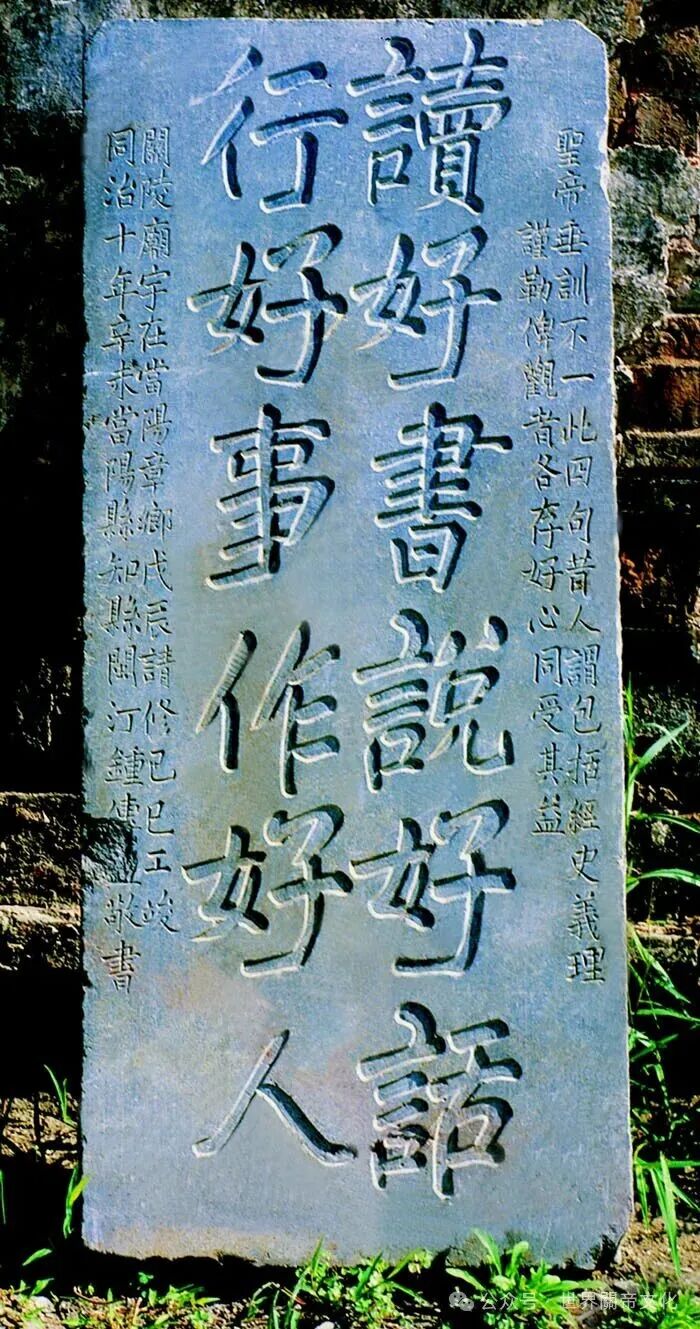 聖帝垂訓不一此四句昔人謂包括經史義理
謹勒俾觀者各存好心同受其益
讀好書說好話
行好事作好人
關陵廟宇在當陽章鄉戊辰請修己巳工竣
同治十年辛未當陽縣知縣閩汀鍾敬書
公众号·世界關帝文化